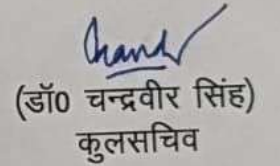 (डॉ0 चन्द्रवीर सिंह)
कुलसचिव